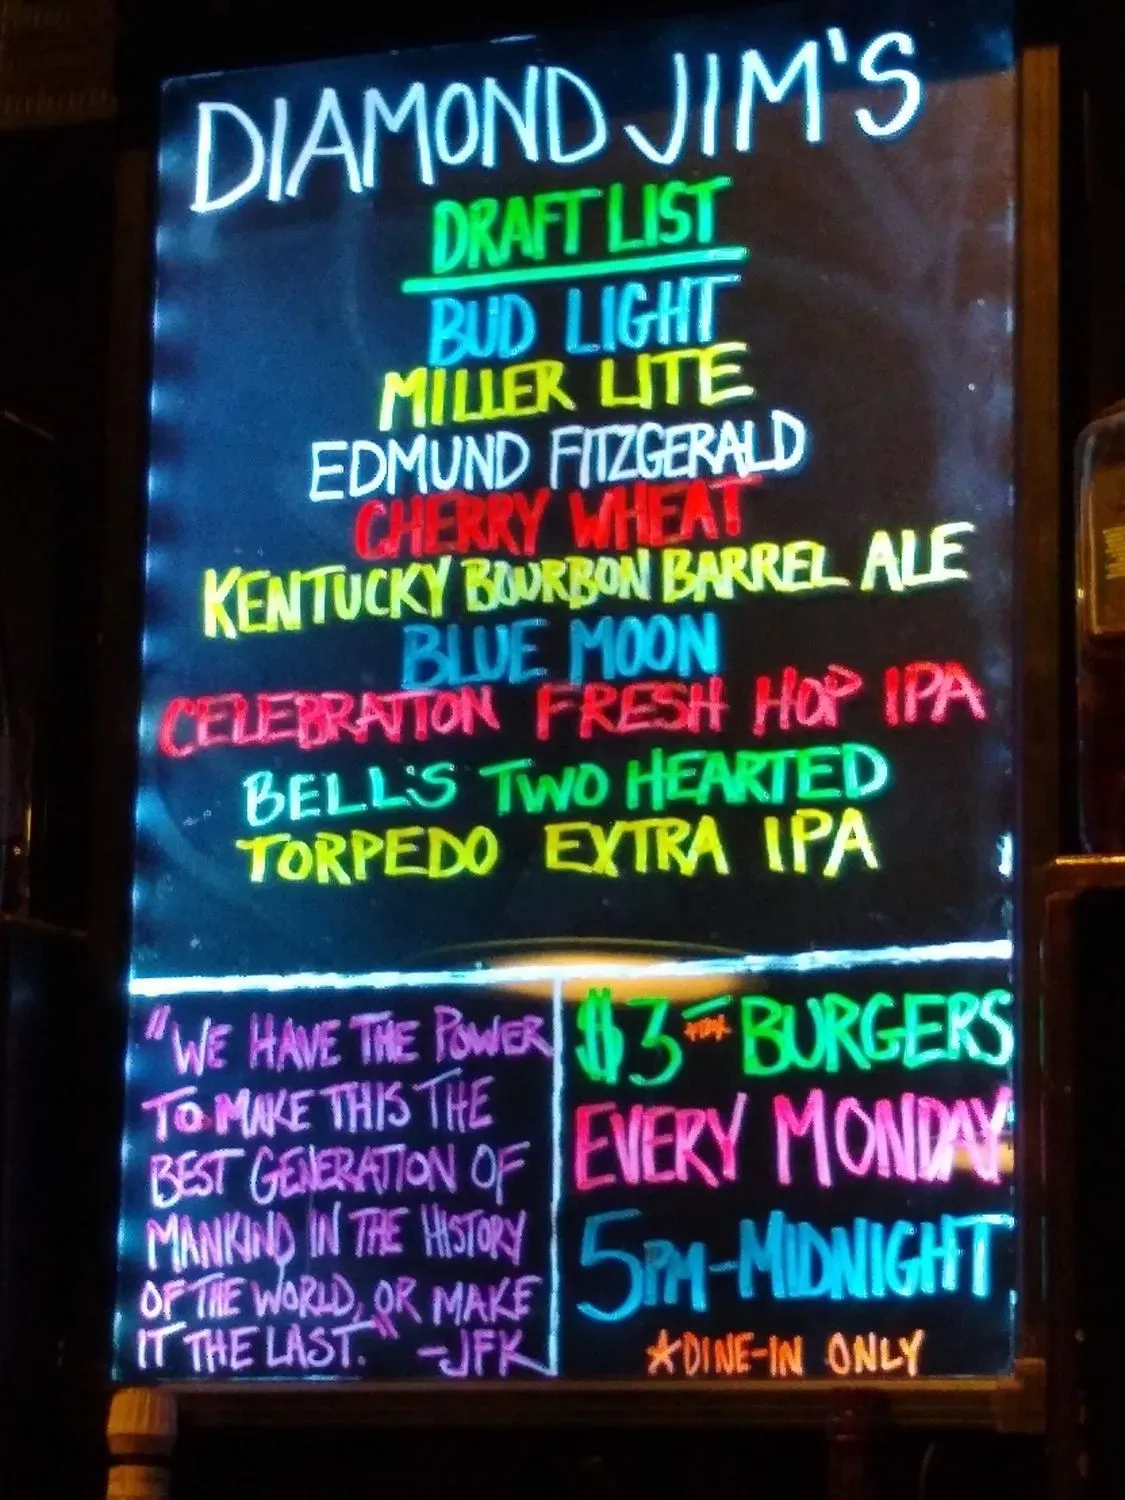 DIAMOND JIM'S
DRAFT LIST
BUD LIGHT
MILLER LITE
EDMUND FITZGERALD
CHERRY WHEAT
KENTUCKY BOURBON BARREL ALE
BLUE MOON
CELEBRATION FRESH HOP IPA
BELL'S TWO HEARTED
TORPEDO EXTRA IPA
"WE HAVE THE POWER
TO MAKE THIS THE
BEST GENERATION OF
MANKIND IN THE HISTORY
OF THE WORLD, OR MAKE
IT THE LAST." -JFK
$3 BURGERS
EVERY MONDAY
5PM-MIDNIGHT
*DINE-IN ONLY